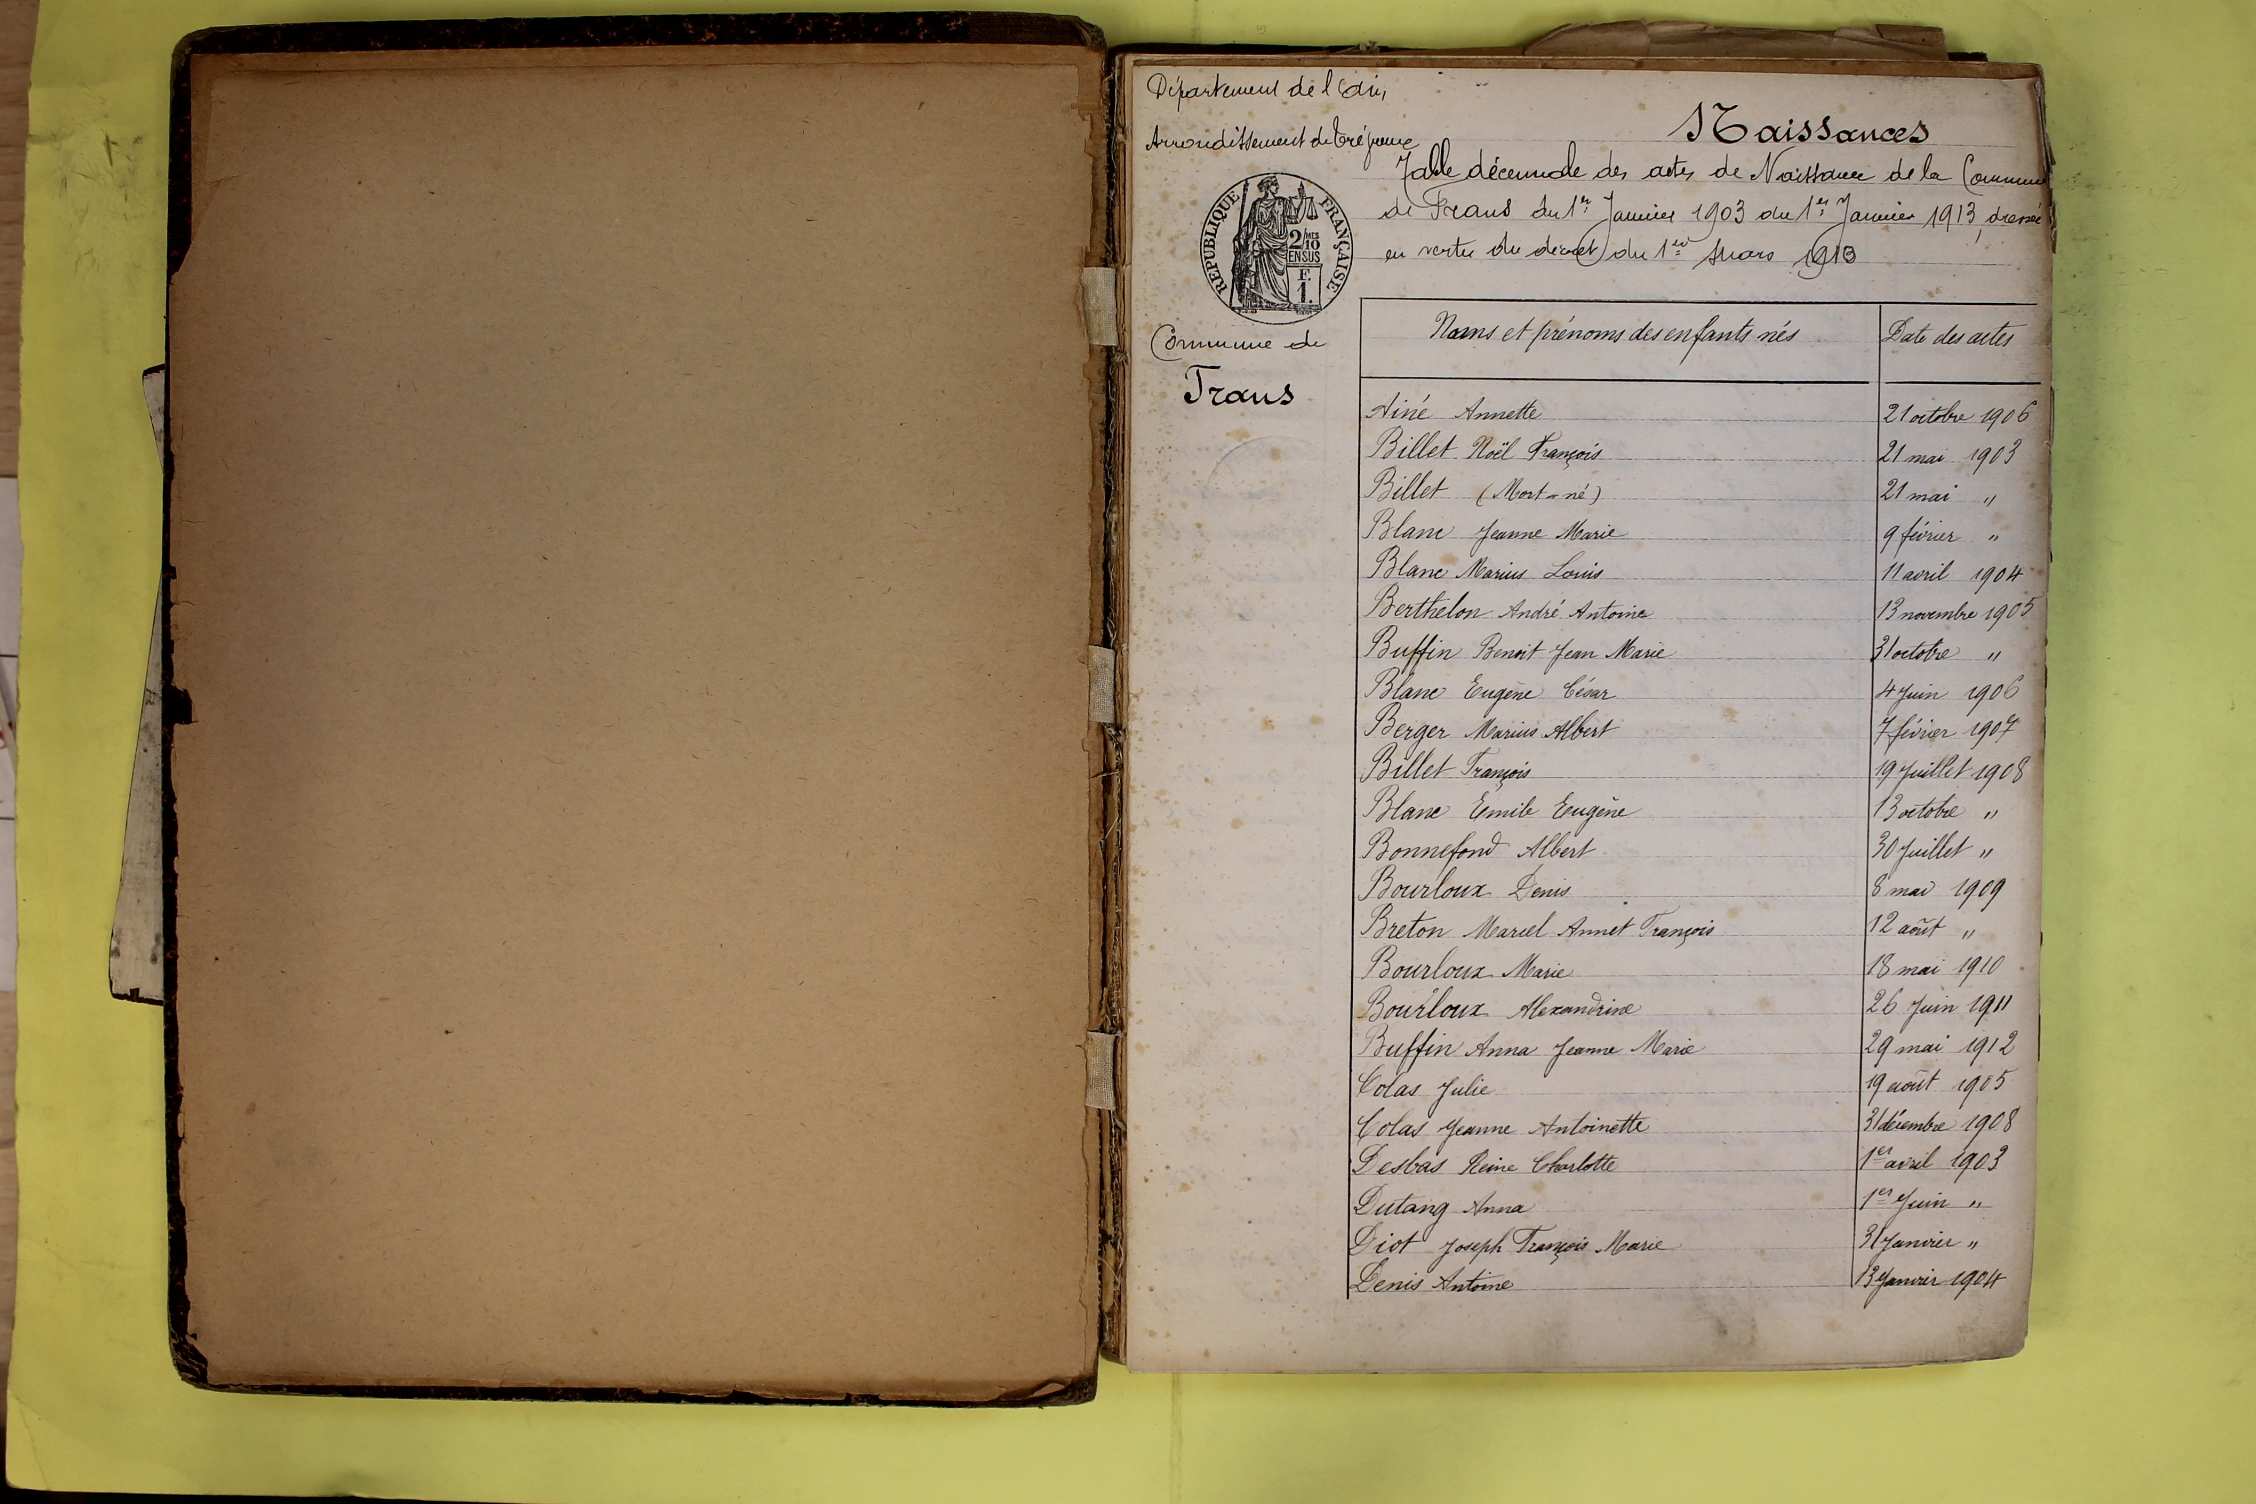 Département de l'Ain
Arrondissement de Trévoux
REPUBLIQUE FRANÇAISE
2/10 MES
EN SUS
F.
1.
Commune de
Trans
Naissances
Table décennale des actes de Naissance de la Commune
de Frans du 1er Janvier 1903 au 1er Janvier 1913, dressée
en vertu du décret du 1er Mars 1913
Noms et prénoms des enfants nés Date des actes
Ainé Annette 21 octobre 1906
Billet Noël François 21 mai 1903
Billet (Mort-né) 21 mai "
Blanc Jeanne Marie 9 février "
Blanc Marius Louis 11 avril 1904
Berthelon André Antoine 13 novembre 1905
Buffin Benoit Jean Marie 31 octobre "
Blanc Eugène César 4 Juin 1906
Berger Marius Albert 7 février 1907
Billet François 19 Juillet 1908
Blanc Emile Eugène 13 octobre "
Bonnefond Albert 30 Juillet "
Bourloux Denis 8 mai 1909
Breton Marcel Annet François 12 août "
Bourloux Marie 18 mai 1910
Bourloux Alexandrine 26 Juin 1911
Buffin Anna Jeanne Marie 29 mai 1912
Colas Julie 19 août 1905
Colas Jeanne Antoinette 31 décembre 1908
Desbas Reine Charlotte 1er avril 1903
Dutang Anna 1er Juin "
Diot Joseph François Marie 31 Janvier "
Denis Antoine 13 Janvier 1904